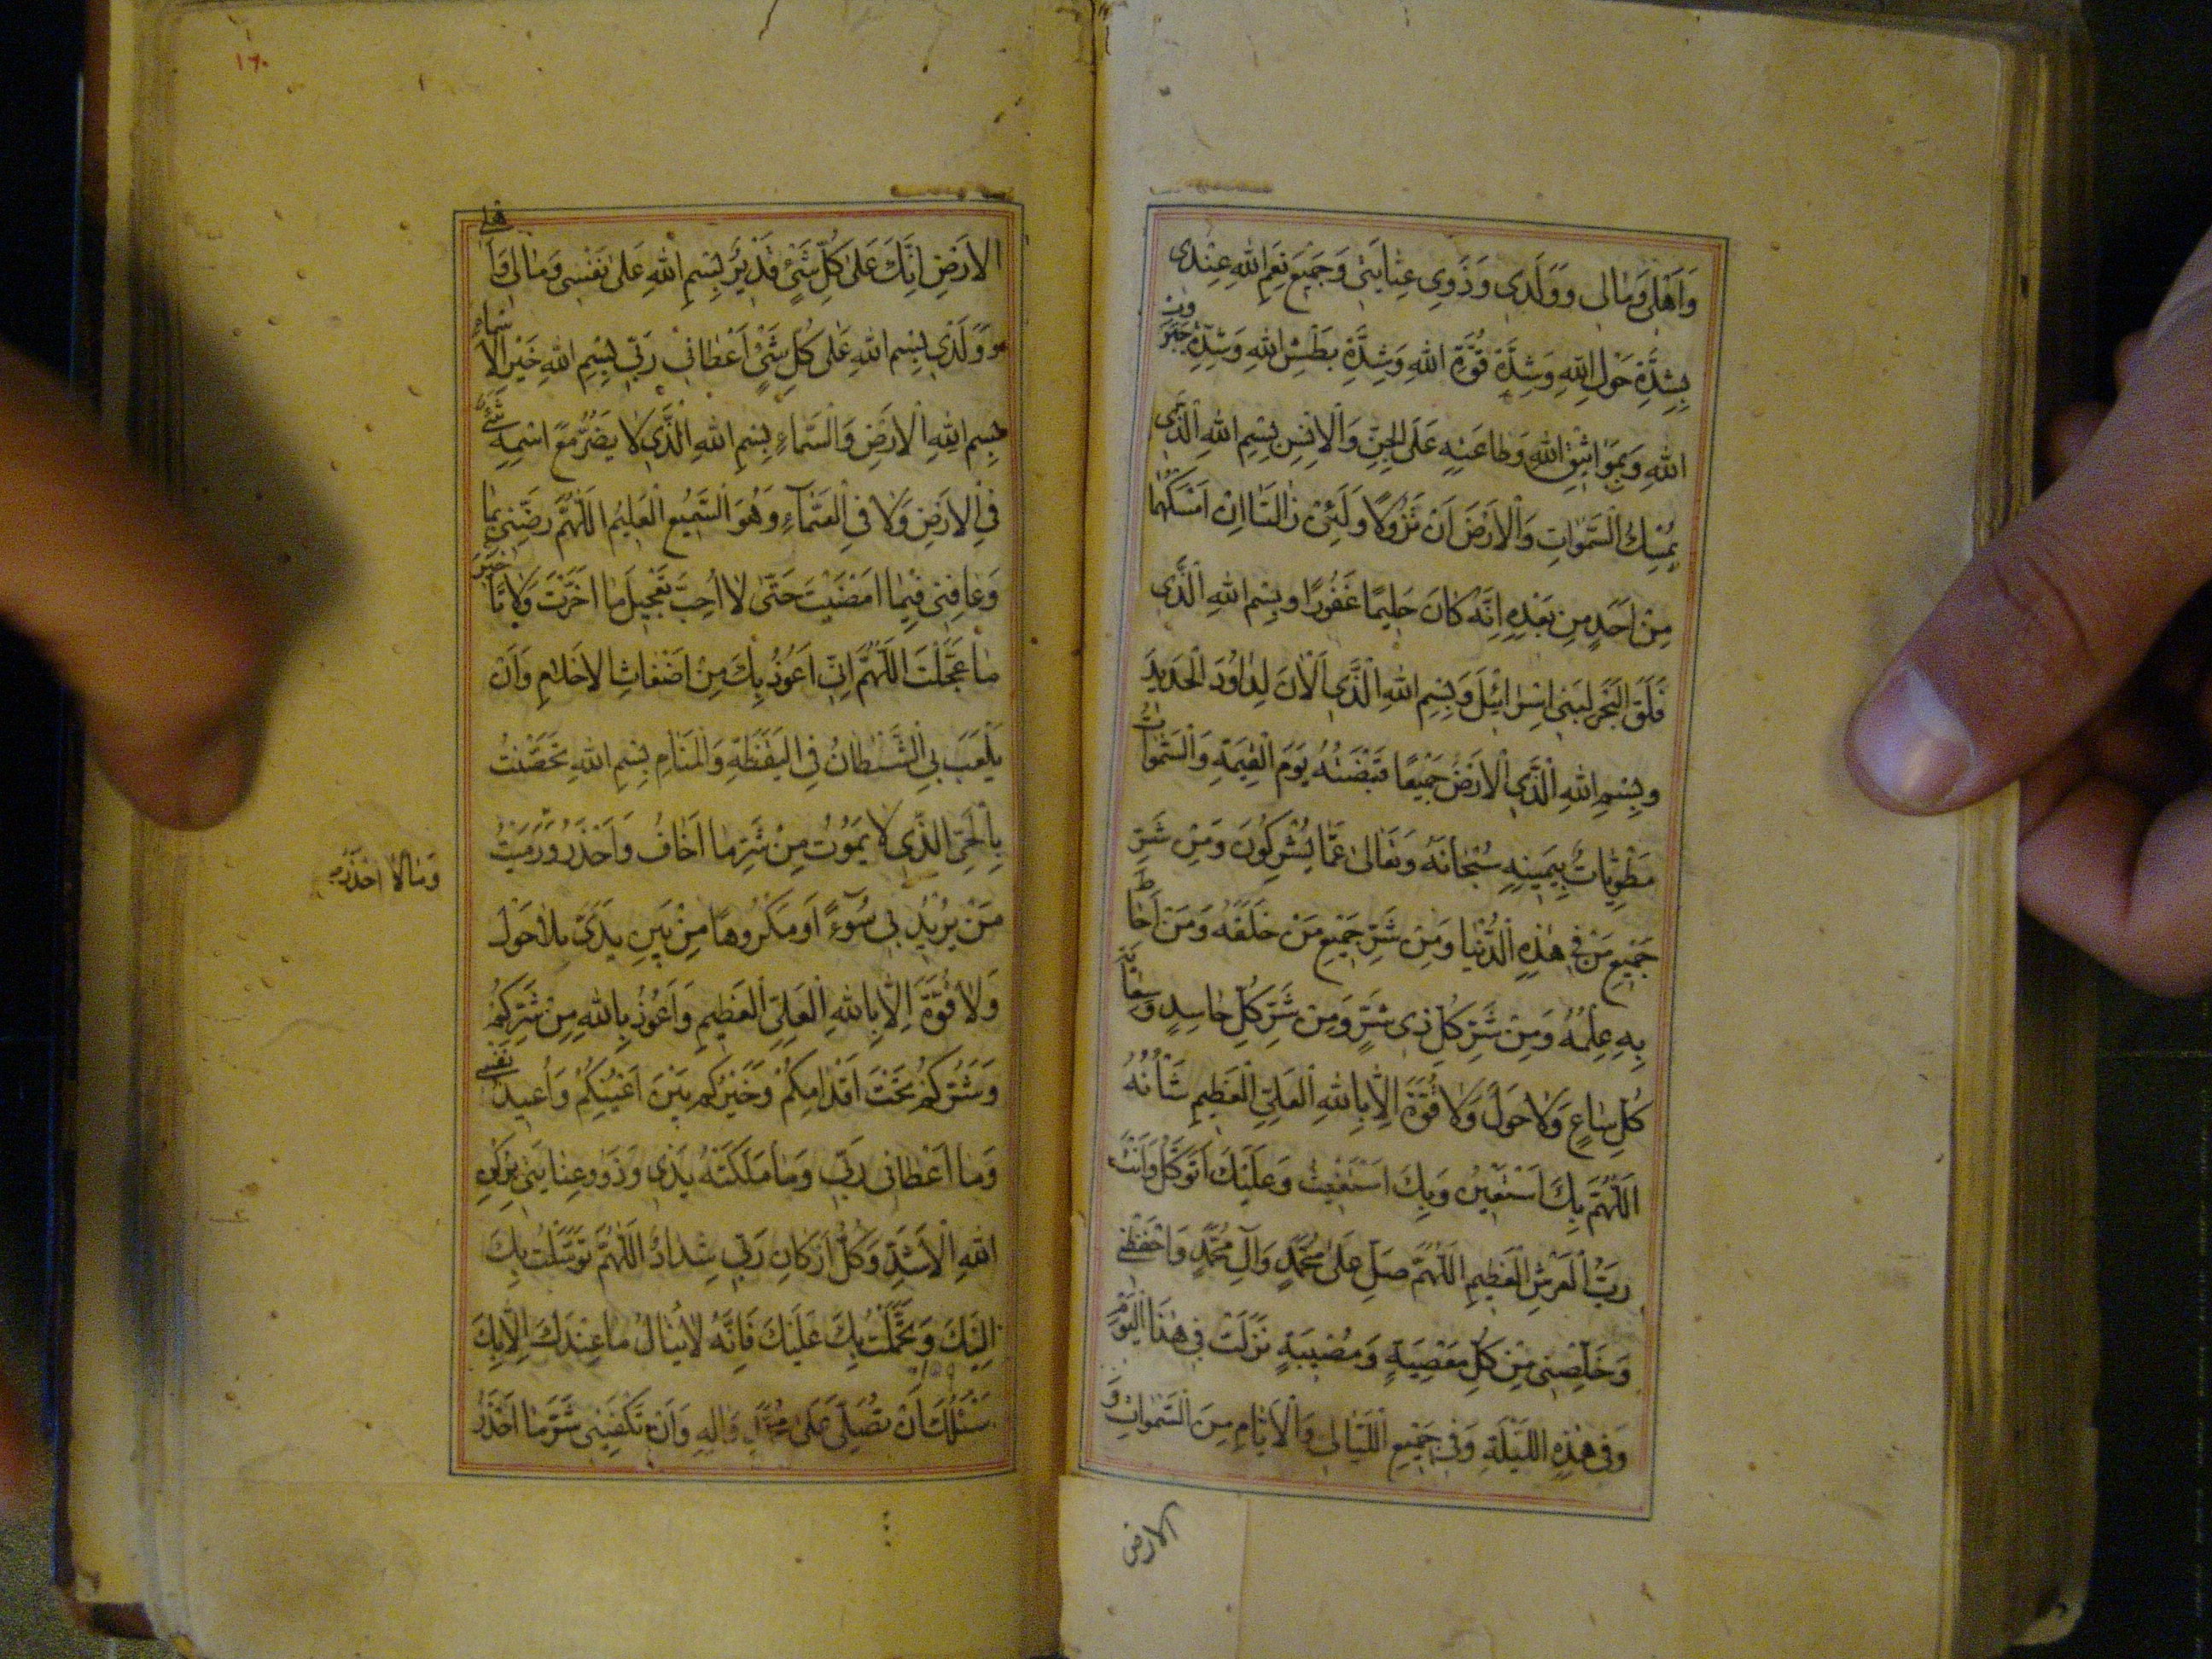 وَاَهْلی وَمٰالی وَوَلَدی وَذَوِی عِنٰایَتی وَجَمیٖعَ نِعَمِ اللهِ عِنْدی
بِشِدَّةِ حَوْلِ اللهِ وَشِدَّةِ قُوَّةِ اللهِ وَشِدَّةِ بَطْشِ اللهِ وَشِدَّةِ جَبَرُوتِ
اللهِ وَبِمَوٰاثیٖقِ اللهِ وَطٰاعَتِهِ عَلَی الجِنِّ وَالْاِنْسِ بِسْمِ اللهِ الَّذی
یُمْسِكُ السَّمٰوٰاتِ وَالْاَرْضَ اَنْ تَزُولٰا وَلَئِنْ زٰالَتٰا اِنْ اَمْسَکَهُمٰا
مِنْ اَحَدٍ مِنْ بَعْدِهِ اِنَّهُ کٰانَ حَلیٖمًا غَفُورًا وَبِسْمِ اللهِ الَّذی
فَلَقَ الْبَحْرَ لِبَنی اِسْرٰائیٖلَ وَبِسْمِ اللهِ الَّذی اَلٰانَ لِدٰاوُدَ الْحَدیٖدَ
وَبِسْمِ اللهِ الَّذی الْاَرْضُ جَمیٖعًا قَبْضَتُهُ یَوْمَ الْقِیٰمَةِ وَالسَّمٰوٰاتُ
مَطْوِیّٰاتٌ بِیَمیٖنِهِ سُبْحٰانَهُ وَتَعٰالیٰ عَمّٰا یُشْرِکُونَ وَمِنْ شَرِّ
جَمیٖعِ مَنْ فی هٰذِهِ الدُّنْیٰا وَمِنْ شَرِّ جَمیٖعِ مَنْ خَلَقَهُ وَمَنْ اَحٰاطَ
بِهِ عِلْمُهُ وَمِنْ شَرِّ کُلِّ ذی شَرٍّ وَمِنْ شَرِّ کُلِّ حٰاسِدٍ وَسِعٰایَةِ
کُلِّ سٰاعٍ وَلٰا حَوْلَ وَلٰا قُوَّةَ اِلّٰا بِاللهِ الْعَلِیِّ الْعَظیٖمِ شَأْنُهُ
اَللّٰهُمَّ بِكَ اَسْتَعیٖنُ وَبِكَ اَسْتَغیٖثُ وَعَلَیْكَ اَتَوَکَّلُ وَاَنْتَ
رَبُّ الْعَرْشِ الْعَظیٖمِ اَللّٰهُمَّ صَلِّ عَلیٰ مُحَمَّدٍ وَآلِ مُحَمَّدٍ وَاحْفَظْنی
وَخَلِّصْنی مِنْ کُلِّ مَعْصِیَةٍ وَمُصیٖبَةٍ نَزَلَتْ فی هٰذَا الْیَوْمِ
وَفی هٰذِهِ اللَّیْلَةِ وَفی جَمیٖعِ اللَّیٰالی وَالْاَیّٰامِ مِنَ السَّمٰوٰاتِ وَ
الارض
۱۶۰
الْاَرْضِ اِنَّكَ عَلیٰ کُلِّ شَیْءٍ قَدیٖرٌ بِسْمِ اللهِ عَلیٰ نَفْسی وَمٰالی وَاَهْلی
وَوَلَدی بِسْمِ اللهِ عَلیٰ کُلِّ شَیْءٍ اَعْطٰانی رَبّی بِسْمِ اللهِ خَیْرِ الْاَسْمٰاءِ
بِسْمِ اللهِ الْاَرْضِ وَالسَّمٰاءِ بِسْمِ اللهِ الَّذی لٰا یَضُرُّ مَعَ اسْمِهِ شَیْءٌ
فِی الْاَرْضِ وَلٰا فِی السَّمٰآءِ وَهُوَ السَّمیٖعُ الْعَلیٖمُ اَللّٰهُمَّ رَضِّنی بِمٰا
وَعٰافِنی فیٖمٰا اَمْضَیْتَ حَتّیٰ لٰا اُحِبَّ تَعْجیٖلَ مٰا اَخَّرْتَ وَلٰا تَأْخیٖرَ
مٰا عَجَّلْتَ اَللّٰهُمَّ اِنّی اَعُوذُ بِكَ مِنْ اَضْغٰاثِ الْاَحْلٰامِ وَاَنْ
یَلْعَبَ بِیَ الشَّیْطٰانُ فِی الْیَقْظَةِ وَالْمَنٰامِ بِسْمِ اللهِ تَحَصَّنْتُ
بِالْحَیِّ الَّذی لٰا یَمُوتُ مِنْ شَرِّ مٰا اَخٰافُ وَاَحْذَرُ وَرَمَیْتُ
وَمٰا لٰا احْذَرُ
مَنْ یُریٖدُ بی سُوٓءً اَوْ مَکْرُوهًا مِنْ بَیْنِ یَدَیَّ بِلٰا حَوْلَ
وَلٰا قُوَّةَ اِلّٰا بِاللهِ الْعَلِیِّ الْعَظیٖمِ وَاَعُوذُ بِاللهِ مِنْ شَرِّکُمْ
وَشَرُّکُمْ تَحْتَ اَقْدٰامِکُمْ وَخَیْرُکُمْ بَیْنَ اَعْیُنِکُمْ وَاُعیٖدُ نَفْسی
وَمٰا اَعْطٰانی رَبّی وَمٰا مَلَکَتْهُ یَدی وَذَوُو عِنٰایَتی بِرُکْنِ
اللهِ الْاَشَدِّ وَکُلُّ اَرْکٰانِ رَبّی شِدٰادٌ اَللّٰهُمَّ تَوَسَّلْتُ بِكَ
اِلَیْكَ وَتَحَمَّلْتُ بِكَ عَلَیْكَ فَاِنَّهُ لٰا یُنٰالُ مٰا عِنْدَكَ اِلّٰا بِكَ
سْئَلُكَ اَنْ تُصَلِّیَ عَلیٰ مُحَمَّدٍ وَآلِهِ وَاَنْ تَکْفِیَنی شَرَّ مٰا اَحْذَرُ